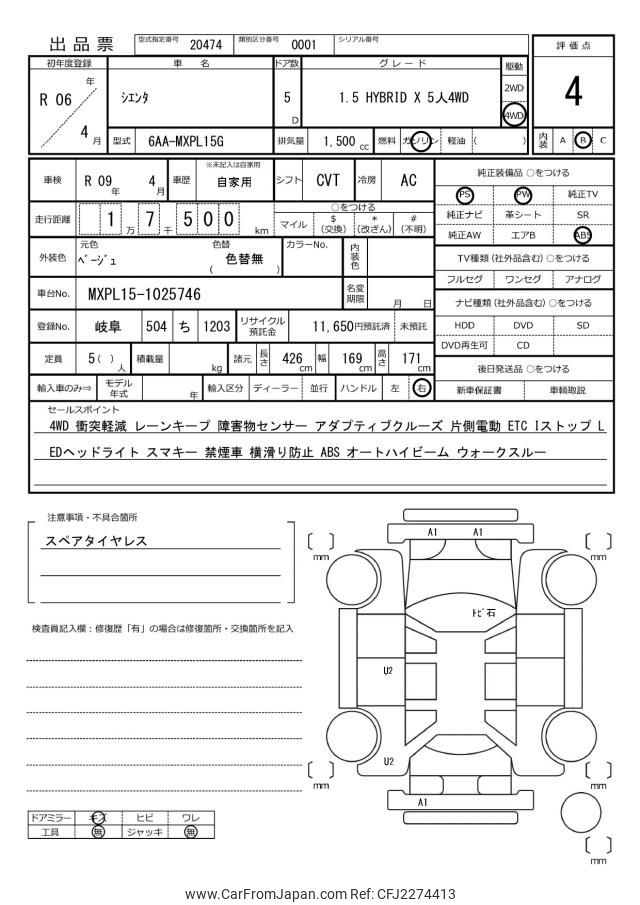 出品票 型式指定番号 20474 類別区分番号 0001 シリアル番号
評価点
4
内装 A B C
初年度登録 車名 ドア数 グレード 駆動
R 06 年 4 月 シエンタ 5 D 1.5 HYBRID X 5人4WD 2WD 4WD
型式 6AA-MXPL15G 排気量 1,500 cc 燃料 ガソリン 軽油 ( )
車検 R 09 年 4 月 車歴 ※未記入は自家用 自家用 シフト CVT 冷房 AC
走行距離 1 万 7 千 5 0 0 km
○をつける
マイル $ (交換) * (改ざん) # (不明)
外装色 元色 ベージュ 色替 ( 色替無 ) カラーNo. 内装色
車台No. MXPL15-1025746 名変期限 月 日
登録No. 岐阜 504 ち 1203 リサイクル預託金 11,650円預託済 未預託
定員 5 ( ) 人 積載量 kg 諸元 長さ 426 cm 幅 169 cm 高さ 171 cm
輸入車のみ⇒ モデル年式 年 輸入区分 ディーラー 並行 ハンドル 左 右
純正装備品 ○をつける
PS PW 純正TV
純正ナビ 革シート SR
純正AW エアB ABS
TV種類 (社外品含む) ○をつける
フルセグ ワンセグ アナログ
ナビ種類 (社外品含む) ○をつける
HDD DVD SD
DVD再生可 CD
後日発送品 ○をつける
新車保証書 車輌取説
セールスポイント
4WD 衝突軽減 レーンキープ 障害物センサー アダプティブクルーズ 片側電動 ETC Iストップ L
EDヘッドライト スマキー 禁煙車 横滑り防止 ABS オートハイビーム ウォークスルー
注意事項・不具合箇所
スペアタイヤレス
検査員記入欄：修復歴「有」の場合は修復箇所・交換箇所を記入
ドアミラー キズ ヒビ ワレ
工具 無 ジャッキ 無
A1 A1
mm mm
トビ石
U2
U2
A1
mm mm
mm
www.CarFromJapan.com Ref: CFJ2274413